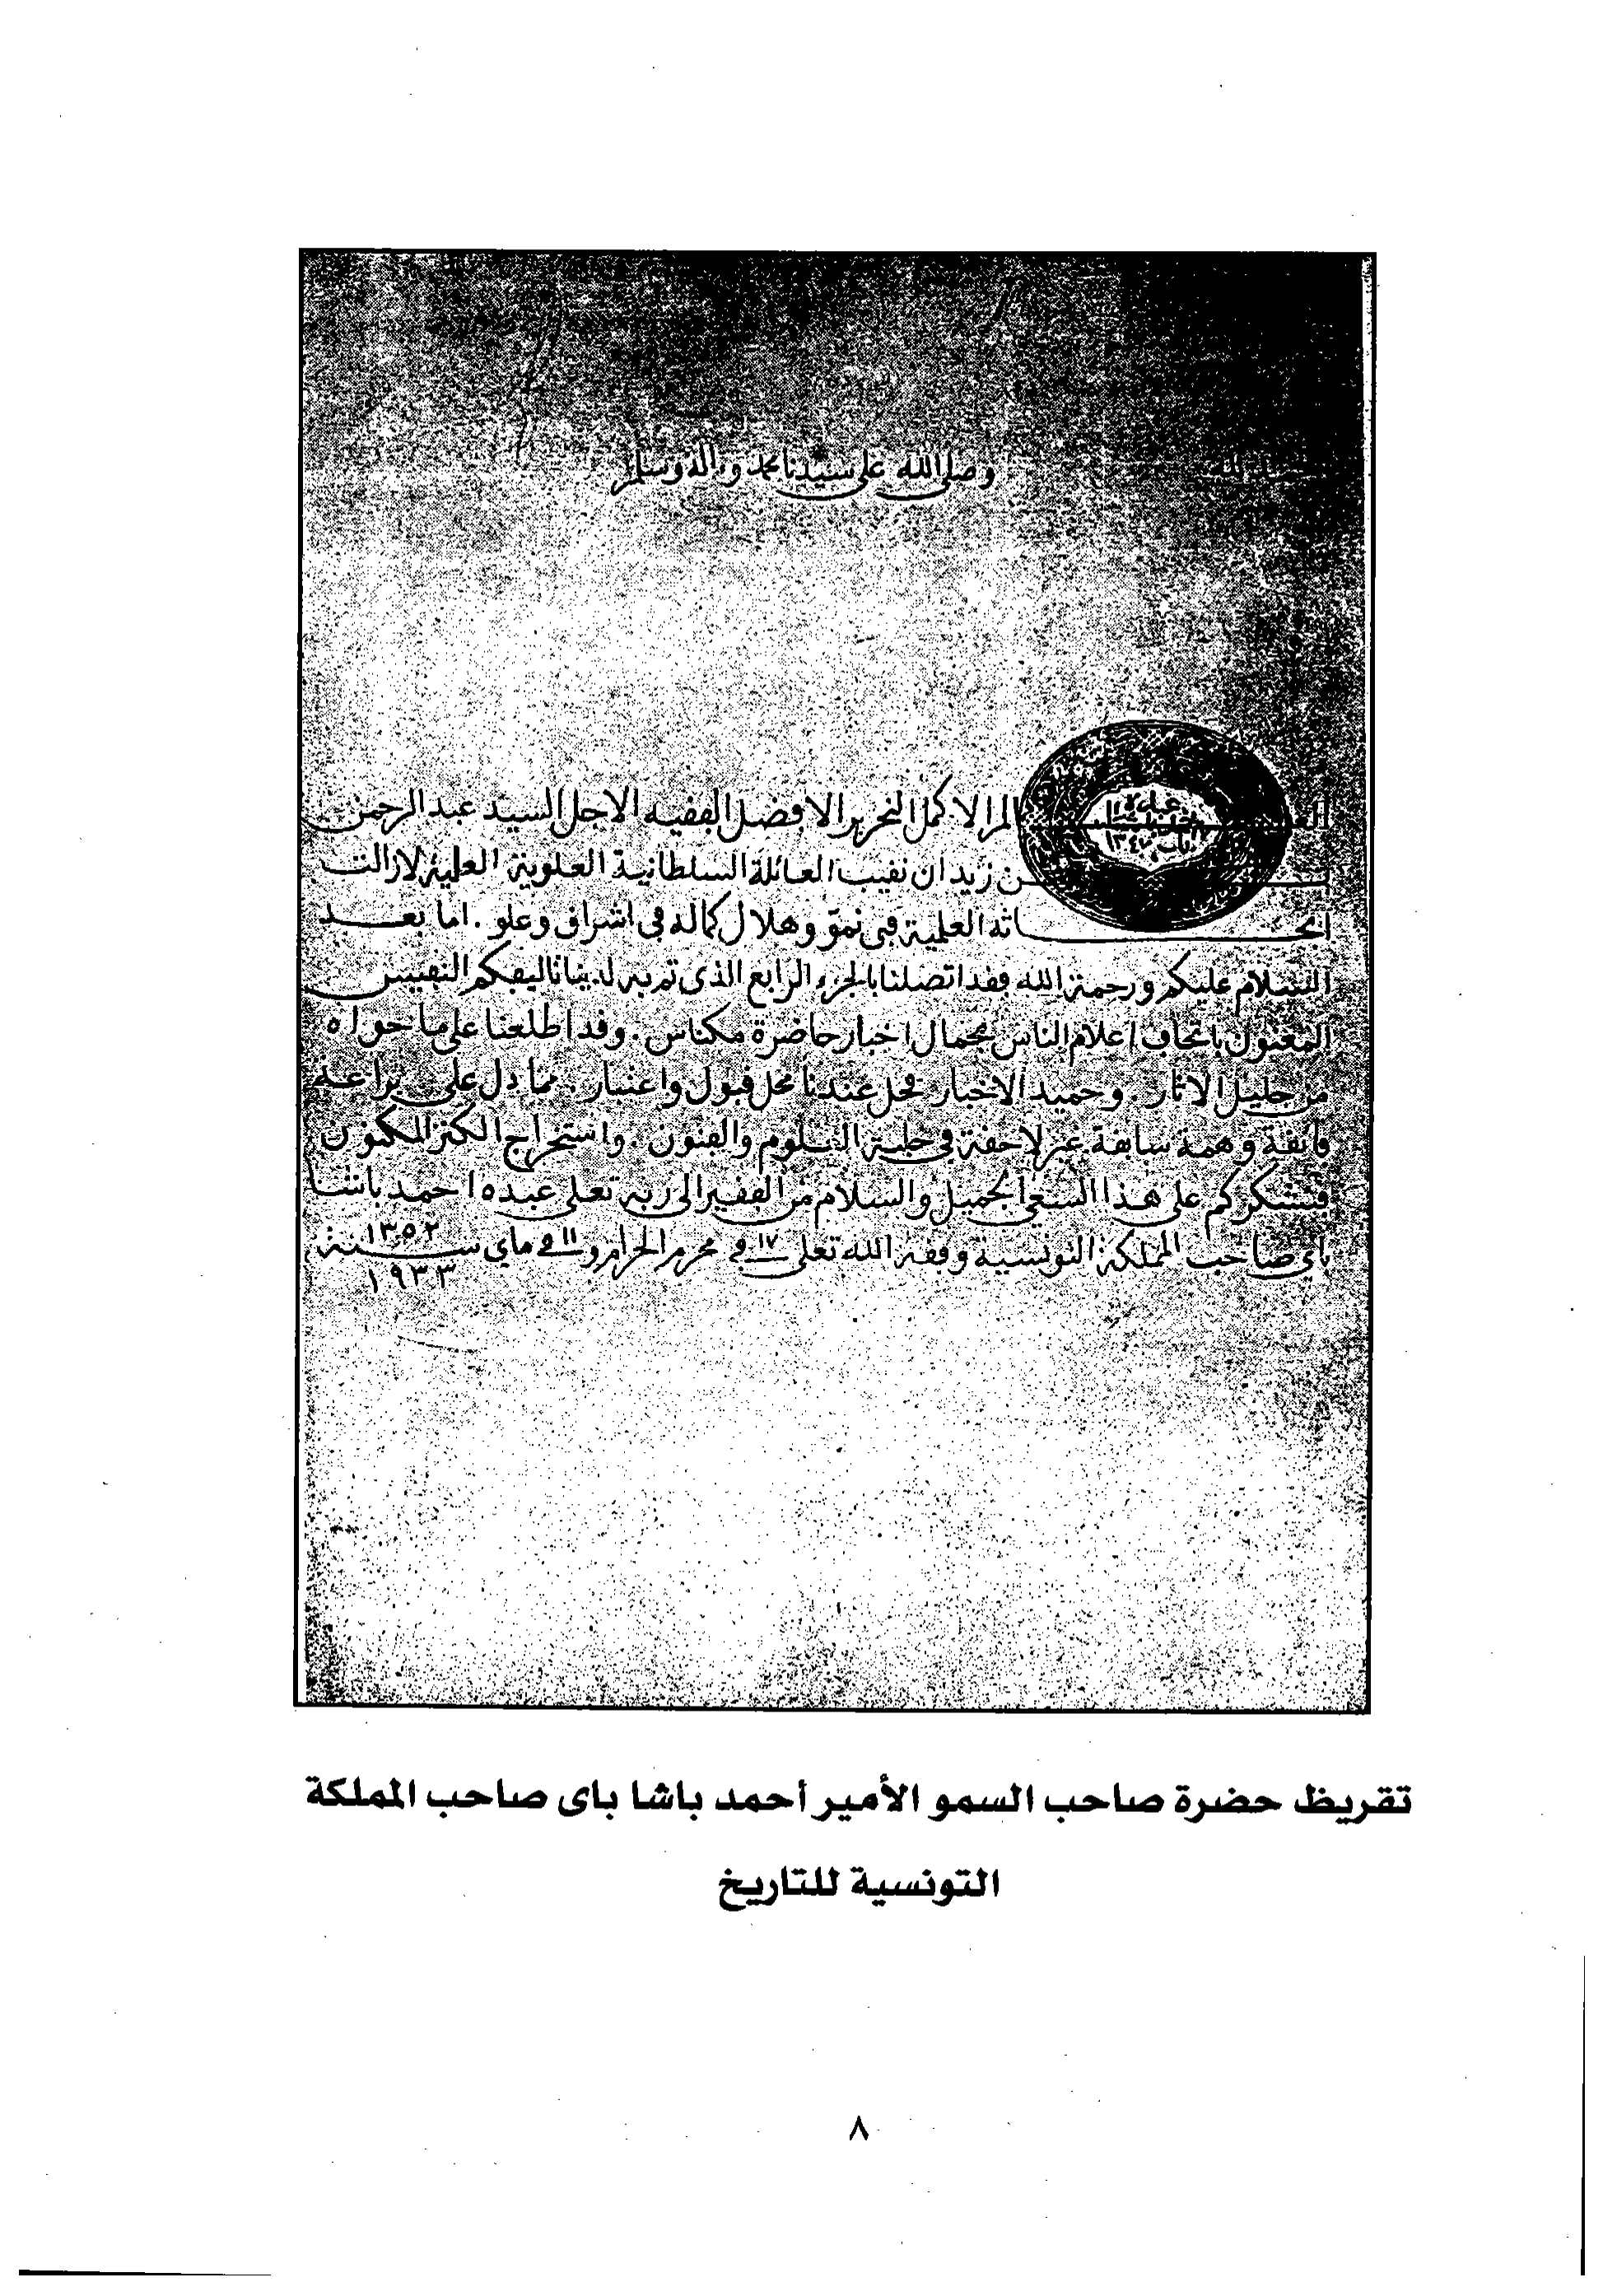 وصلى الله على سيدنا محمد وءاله وسلم
الاكمل النحرير الافضل الفقيه الاجل السيد عبد الرحمن
بن زيدان نقيب العائلة السلطانية العلوية العلية لازالت
ابحاثه العلمية في نمو وهلال كماله في اشراق وعلو . اما بعد
السلام عليكم ورحمة الله فقد اتصلنا بالجزء الرابع الذي تم به لدينا تاليفكم النفيس
المعنون باتحاف اعلام الناس بجمال اخبار حاضرة مكناس . وقد اطلعنا على ما حواه
من جليل الاثار . وحميد الاخبار فحل عندنا محل قبول واعتبار . مما دل على براعة
فائقة وهمة سابقة غير لاحقة في حلبة العلوم والفنون . واستخراج الكنز المكنون
فنشكركم على هذا السعي الجميل والسلام من الفقير الى ربه تعلى عبده احمد باشا
باي صاحب المملكة التونسية وفقه الله تعلى في ١٧ محرم الحرام وفي ١١ ماي سنة ١٣٥٢
١٩٣٣
١٣٤٧
تقريظ حضرة صاحب السمو الأمير أحمد باشا باى صاحب المملكة
التونسية للتاريخ
٨